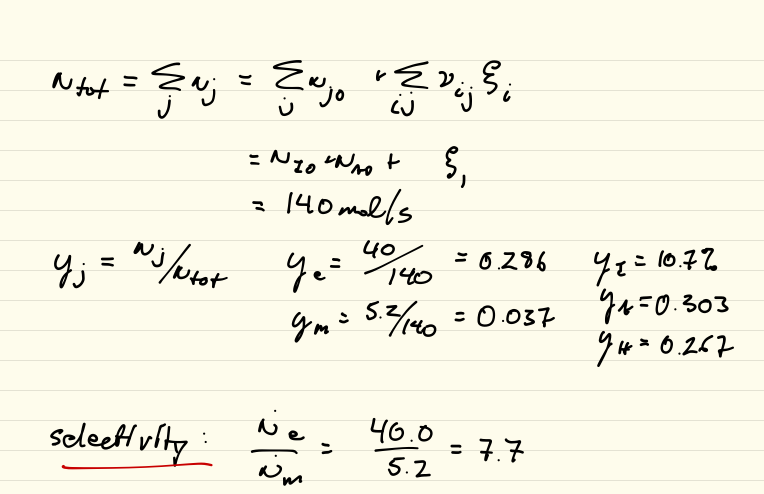 n_tot = Σ_j n_j = Σ_j n_j0 + Σ_ij ν_ij ξ_i
= n_I0 + n_A0 + ξ_1
= 140 mol/s
y_j = n_j/n_tot y_e = 40/140 = 0.286 y_I = 10.7%
y_m = 5.2/140 = 0.037 y_A = 0.303
y_H = 0.267
selectivity: ṅ_e/ṅ_m = 40.0/5.2 = 7.7